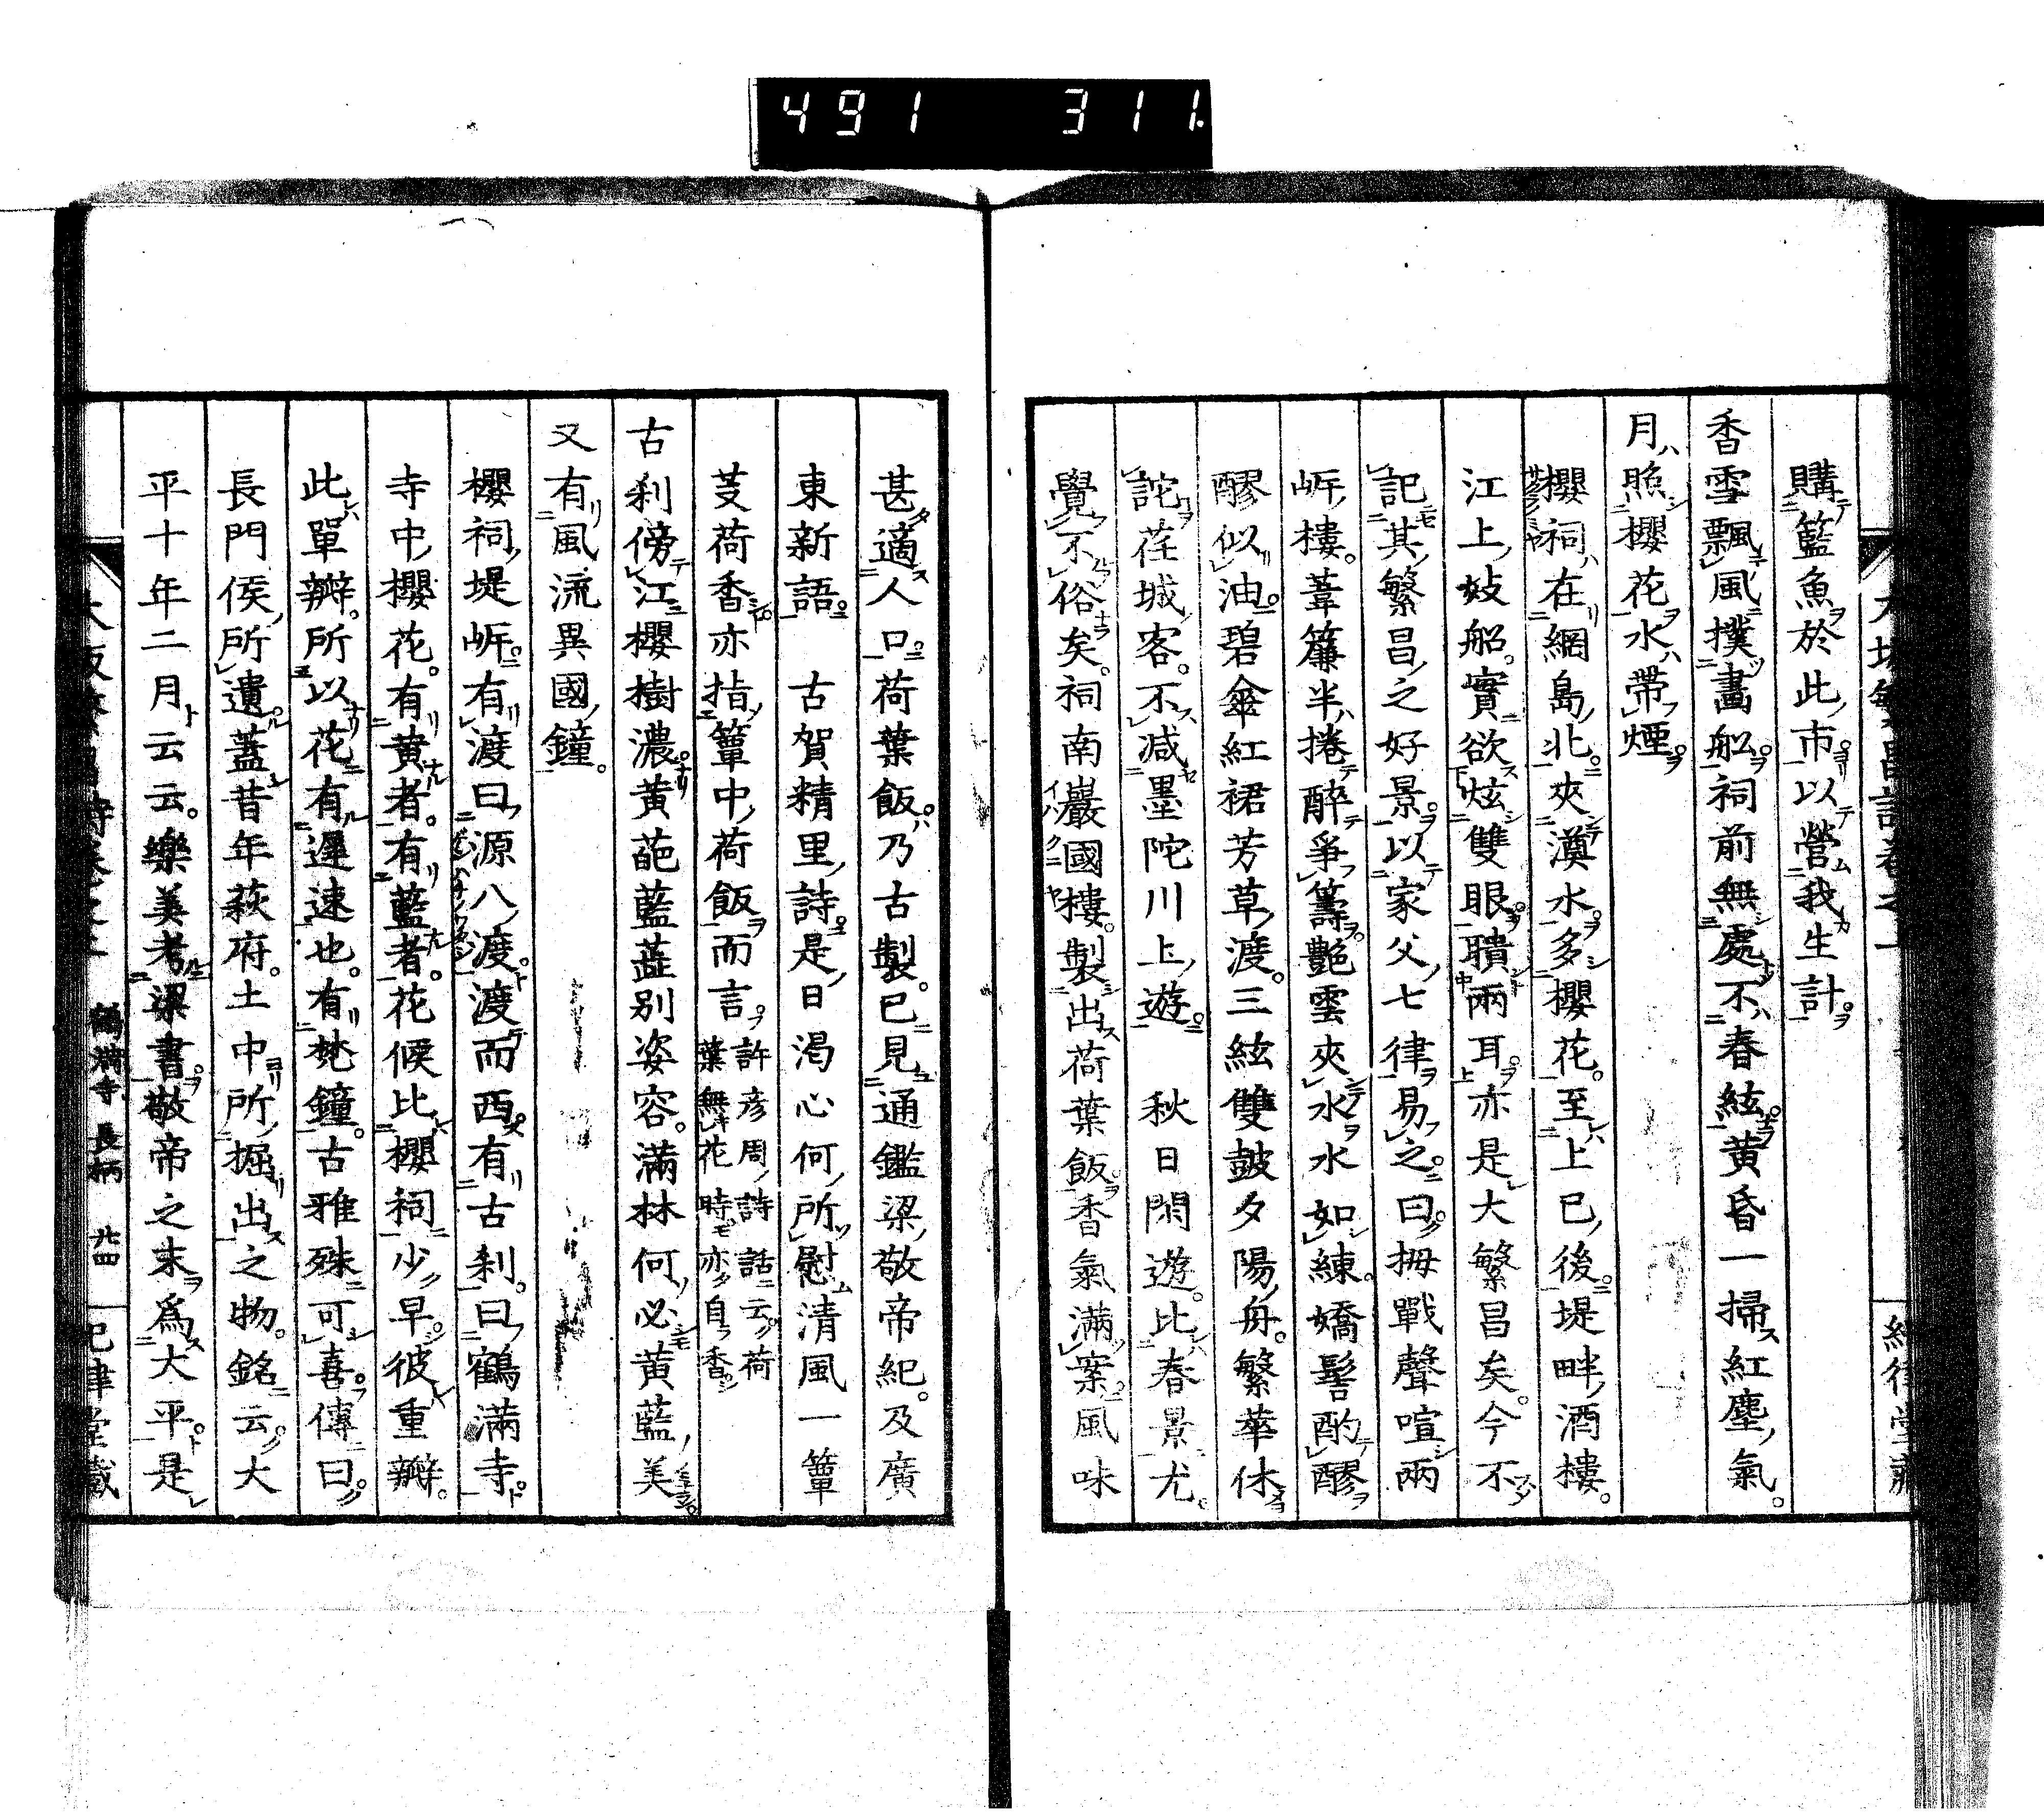 491 311.
購籃魚於此市以營我生計
香雪飄風撲畵舩祠前無處不春絃黄昏一掃紅塵氣
月照櫻花水帶煙
櫻祠在網島北夾澳水多櫻花至上巳後堤畔酒樓
江上妓船實欲炫雙眼聵兩耳亦是大繁昌矣今不
記其繁昌之好景以家父七律易之曰拇戰聲喧兩
岍樓葦簾半捲醉爭籌艷雲夾水水如練嬌髻酌醪
醪似油碧傘紅裙芳草渡三絃雙皷夕陽舟繁華休
詫荏城客不减墨陀川上遊 秋日閑遊比春景尤
覺不俗矣祠南巖國樓製出荷葉飯香氣滿案風味
甚適人口荷葉飯乃古製已見通鑑梁敬帝紀及廣
東新語 古賀精里詩是日渇心何所慰清風一簞
芰荷香亦指簞中荷飯而言許彦周詩話云荷葉無花時亦自香
古刹傍江櫻樹濃黄葩藍蕋别姿容滿林何必黄藍美
又有風流異國鐘
櫻祠堤岍有渡曰源八渡渡而西有古刹曰鶴滿寺
寺中櫻花有黄者有藍者花候比櫻祠少早彼重瓣
此單瓣所以花有遲速也有梵鐘古雅殊可喜傳曰
長門侯所遺蓋昔年萩府土中所掘出之物銘云大
平十年二月云云樂美考梁書敬帝之末爲大平是
鶴滿寺 長柄 廿四